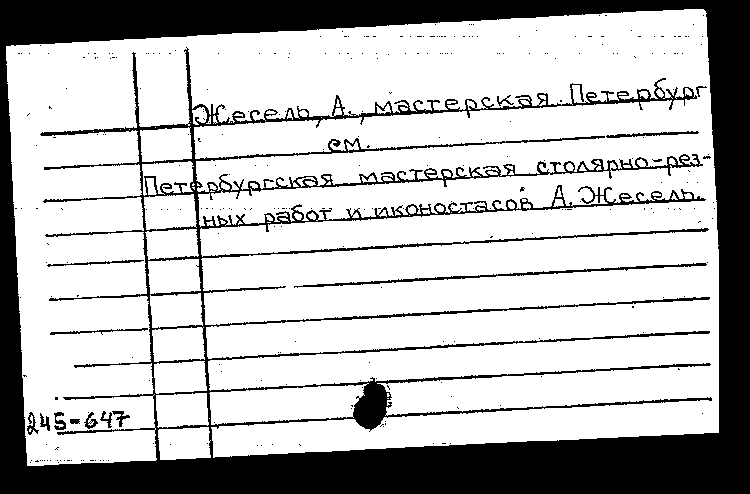 Жесель, А., мастерская. Петербург
см.
Петербургская мастерская столярно-рез-
ных работ и иконостасов А. Жесель.
245-647